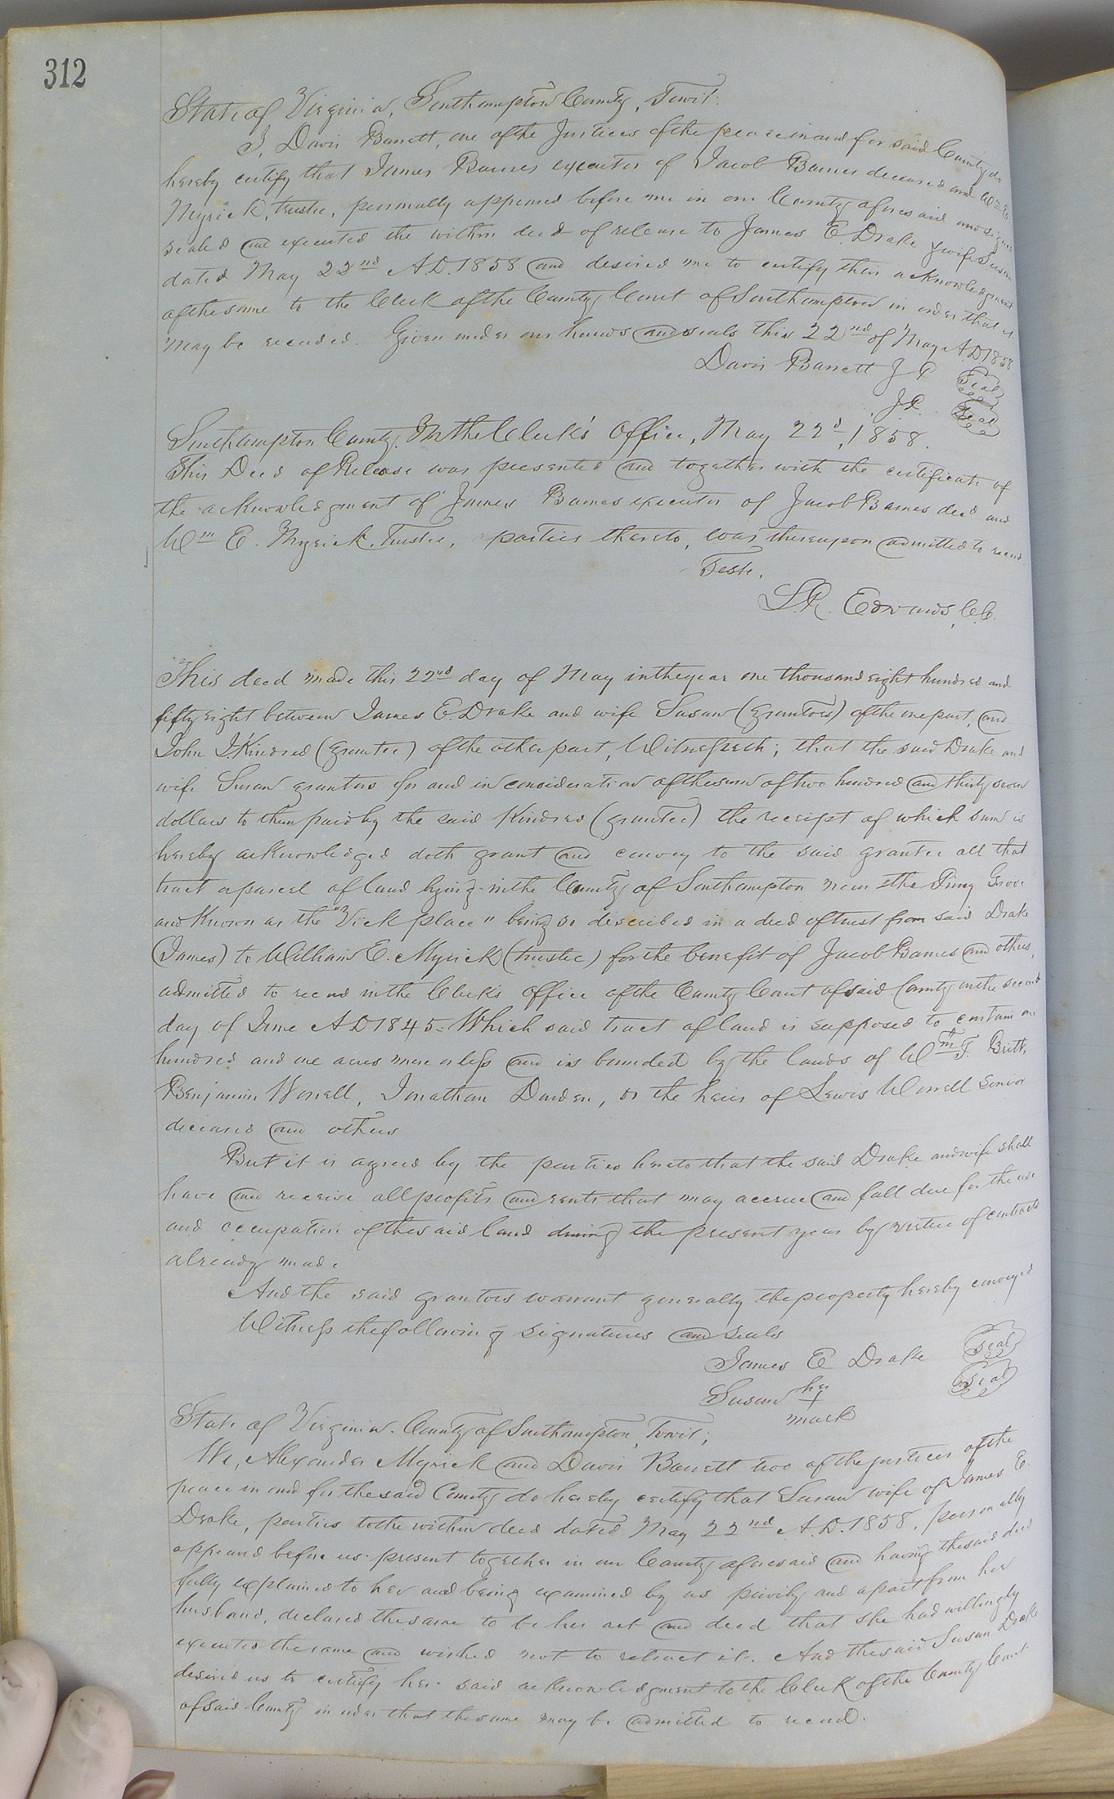 312
State of Virginia, Southampton County, Towit:
I, Davis Barrett, one of the Justices of the peace in and for said County do
hereby certify that James Barnes executor of Jacob Barnes deceased and Wm E
Myrick, trustee, personally appeared before me in our County aforesaid and signed
sealed and executed the within deed of release to James E. Drake & wife Susan
dated May 22nd A.D. 1858 and desired me to certify their acknowledgment
of the same to the Clerk of the County Court of Southampton in order that it
may be recorded. Given under our hands and seals this 22nd of May A.D. 1858
Davis Barrett J P Seal
J.P. Seal
Southampton County. In the Clerk's Office, May 22d, 1858.
This Deed of Release was presented and together with the certificate of
the acknowledgment of James Barnes executor of Jacob Barnes decd and
Wm E. Myrick, Trustee, parties thereto, was thereupon admitted to record
Teste,
L.R. Edwards, C.C.
This deed made this 22nd day of May in the year one thousand eight hundred and
fifty eight between James E. Drake and wife Susan (grantors) of the one part, and
John J. Kindred (grantee) of the other part, Witnesseth; that the said Drake and
wife Susan grantors for and in consideration of the sum of two hundred and thirty seven
dollars to them paid by the said Kindred (grantee) the receipt of which sum is
hereby acknowledged doth grant and convey to the said grantee all that
tract or parcel of land lying in the County of Southampton near the Piney Grove
and known as the "Vick place" being so described in a deed of trust from said Drake
(James) to William E. Myrick (trustee) for the benefit of Jacob Barnes and others,
admitted to record in the Clerk's Office of the County Court of said County on the second
day of June A.D 1845. Which said tract of land is supposed to contain one
hundred and one acres more or less and is bounded by the lands of Wm T. Britt,
Benjamin Worrell, Jonathan Darden, or the heirs of Lewis Worrell Senior
deceased and others
But it is agreed by the parties hereto that the said Drake and wife shall
have and receive all profits and rents that may accrue and fall due for the use
and occupation of the said land during the present year by virtue of contracts
already made
And the said grantors warrant generally the property hereby conveyed
Witness the following signatures and seals
James E Drake Seal
Susan her + mark Seal
State of Virginia. County of Southampton, Towit;
We, Alexander Myrick and Davis Barrett two of the justices of the
peace in and for the said County do hereby certify that Susan wife of James E.
Drake, parties to the within deed dated May 22nd A.D. 1858, personally
appeared before us present together in our County aforesaid and having the said deed
fully explained to her and being examined by us privily and apart from her
husband, declared the same to be her act and deed that she had willingly
executed the same and wished not to retract it. And the said Susan Drake
desired us to certify her said acknowledgment to the Clerk of the County Court
of said County in order that the same may be admitted to record.